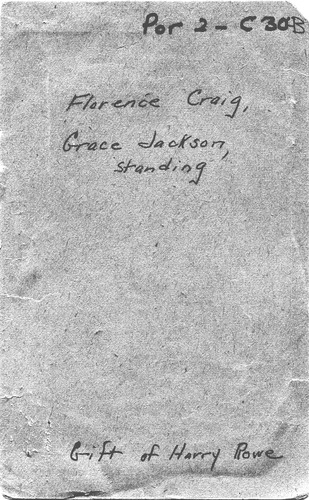 Por 2 - C 30B
Florence Craig,
Grace Jackson,
standing
Gift of Harry Rowe